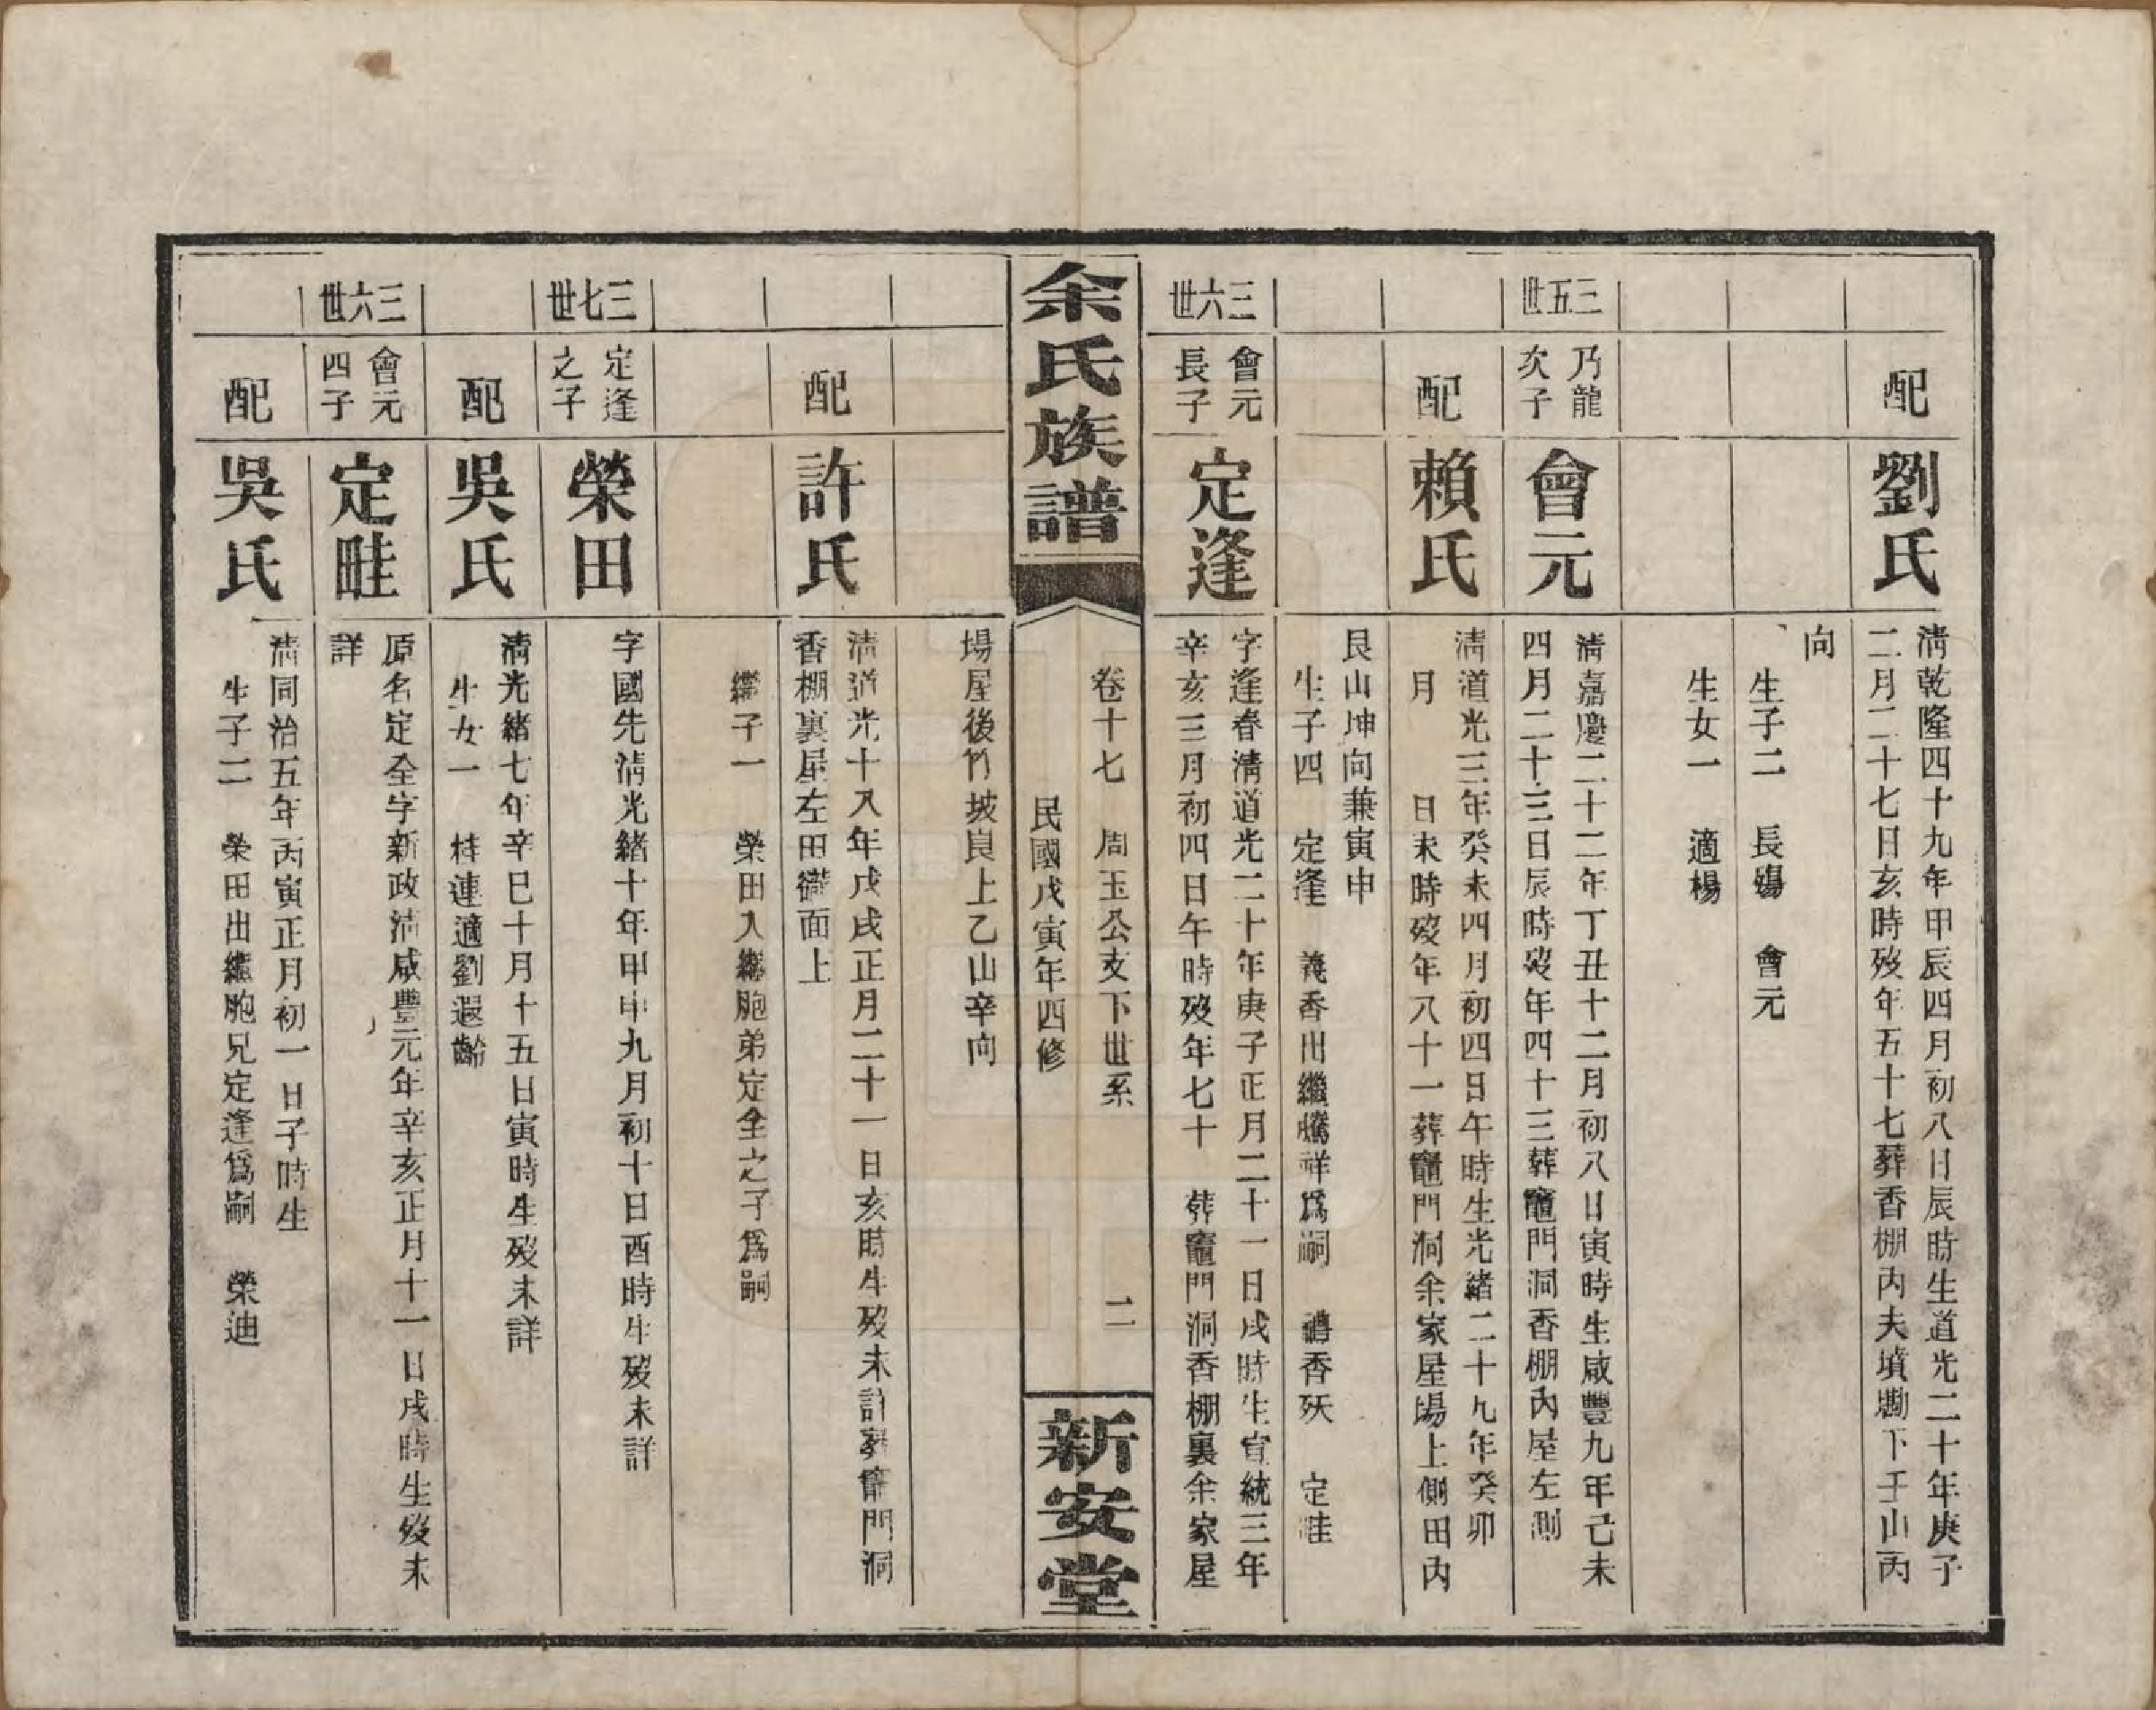 配
劉氏
清乾隆四十九年甲辰四月初八日辰時生道光二十年庚子
二月二十七日亥時歿年五十七葬香棚內夫墳勘下壬山丙
向
生子二　長殤　會元
生女一　適楊
三五世
乃龍
次子
會元
清嘉慶二十二年丁丑十二月初八日寅時生咸豐九年己未
四月二十三日辰時歿年四十三葬竈門洞香棚內屋左側
配
賴氏
清道光三年癸未四月初四日午時生光緒二十九年癸卯
月　　日未時歿年八十一葬竈門洞余家屋場上側田內
艮山坤向兼寅申
生子四　定逢　義香出繼騰祥爲嗣　禮香殀　定畦
三六世
會元
長子
定逢
字逢春清道光二十年庚子正月二十一日戌時生宣統三年
辛亥三月初四日午時歿年七十　葬竈門洞香棚裏余家屋
余氏族譜
卷十七　周玉公支下世系　二
民國戊寅年四修
新安堂
場屋後竹坡艮上乙山辛向
配
許氏
清道光十八年戊戌正月二十一日亥時生歿未詳葬竈門洞
香棚裏屋左田衖面上
繼子一　榮田入繼胞弟定全之子爲嗣
三七世
定逢
之子
榮田
字國先清光緒十年甲申九月初十日酉時生歿未詳
配
吳氏
清光緒七年辛巳十月十五日寅時生歿未詳
生女一　桂連適劉遐齡
三六世
會元
四子
定畦
原名定全字新政清咸豐元年辛亥正月十一日戌時生歿未
詳
配
吳氏
清同治五年丙寅正月初一日子時生
生子二　榮田出繼胞兄定逢爲嗣　榮迪